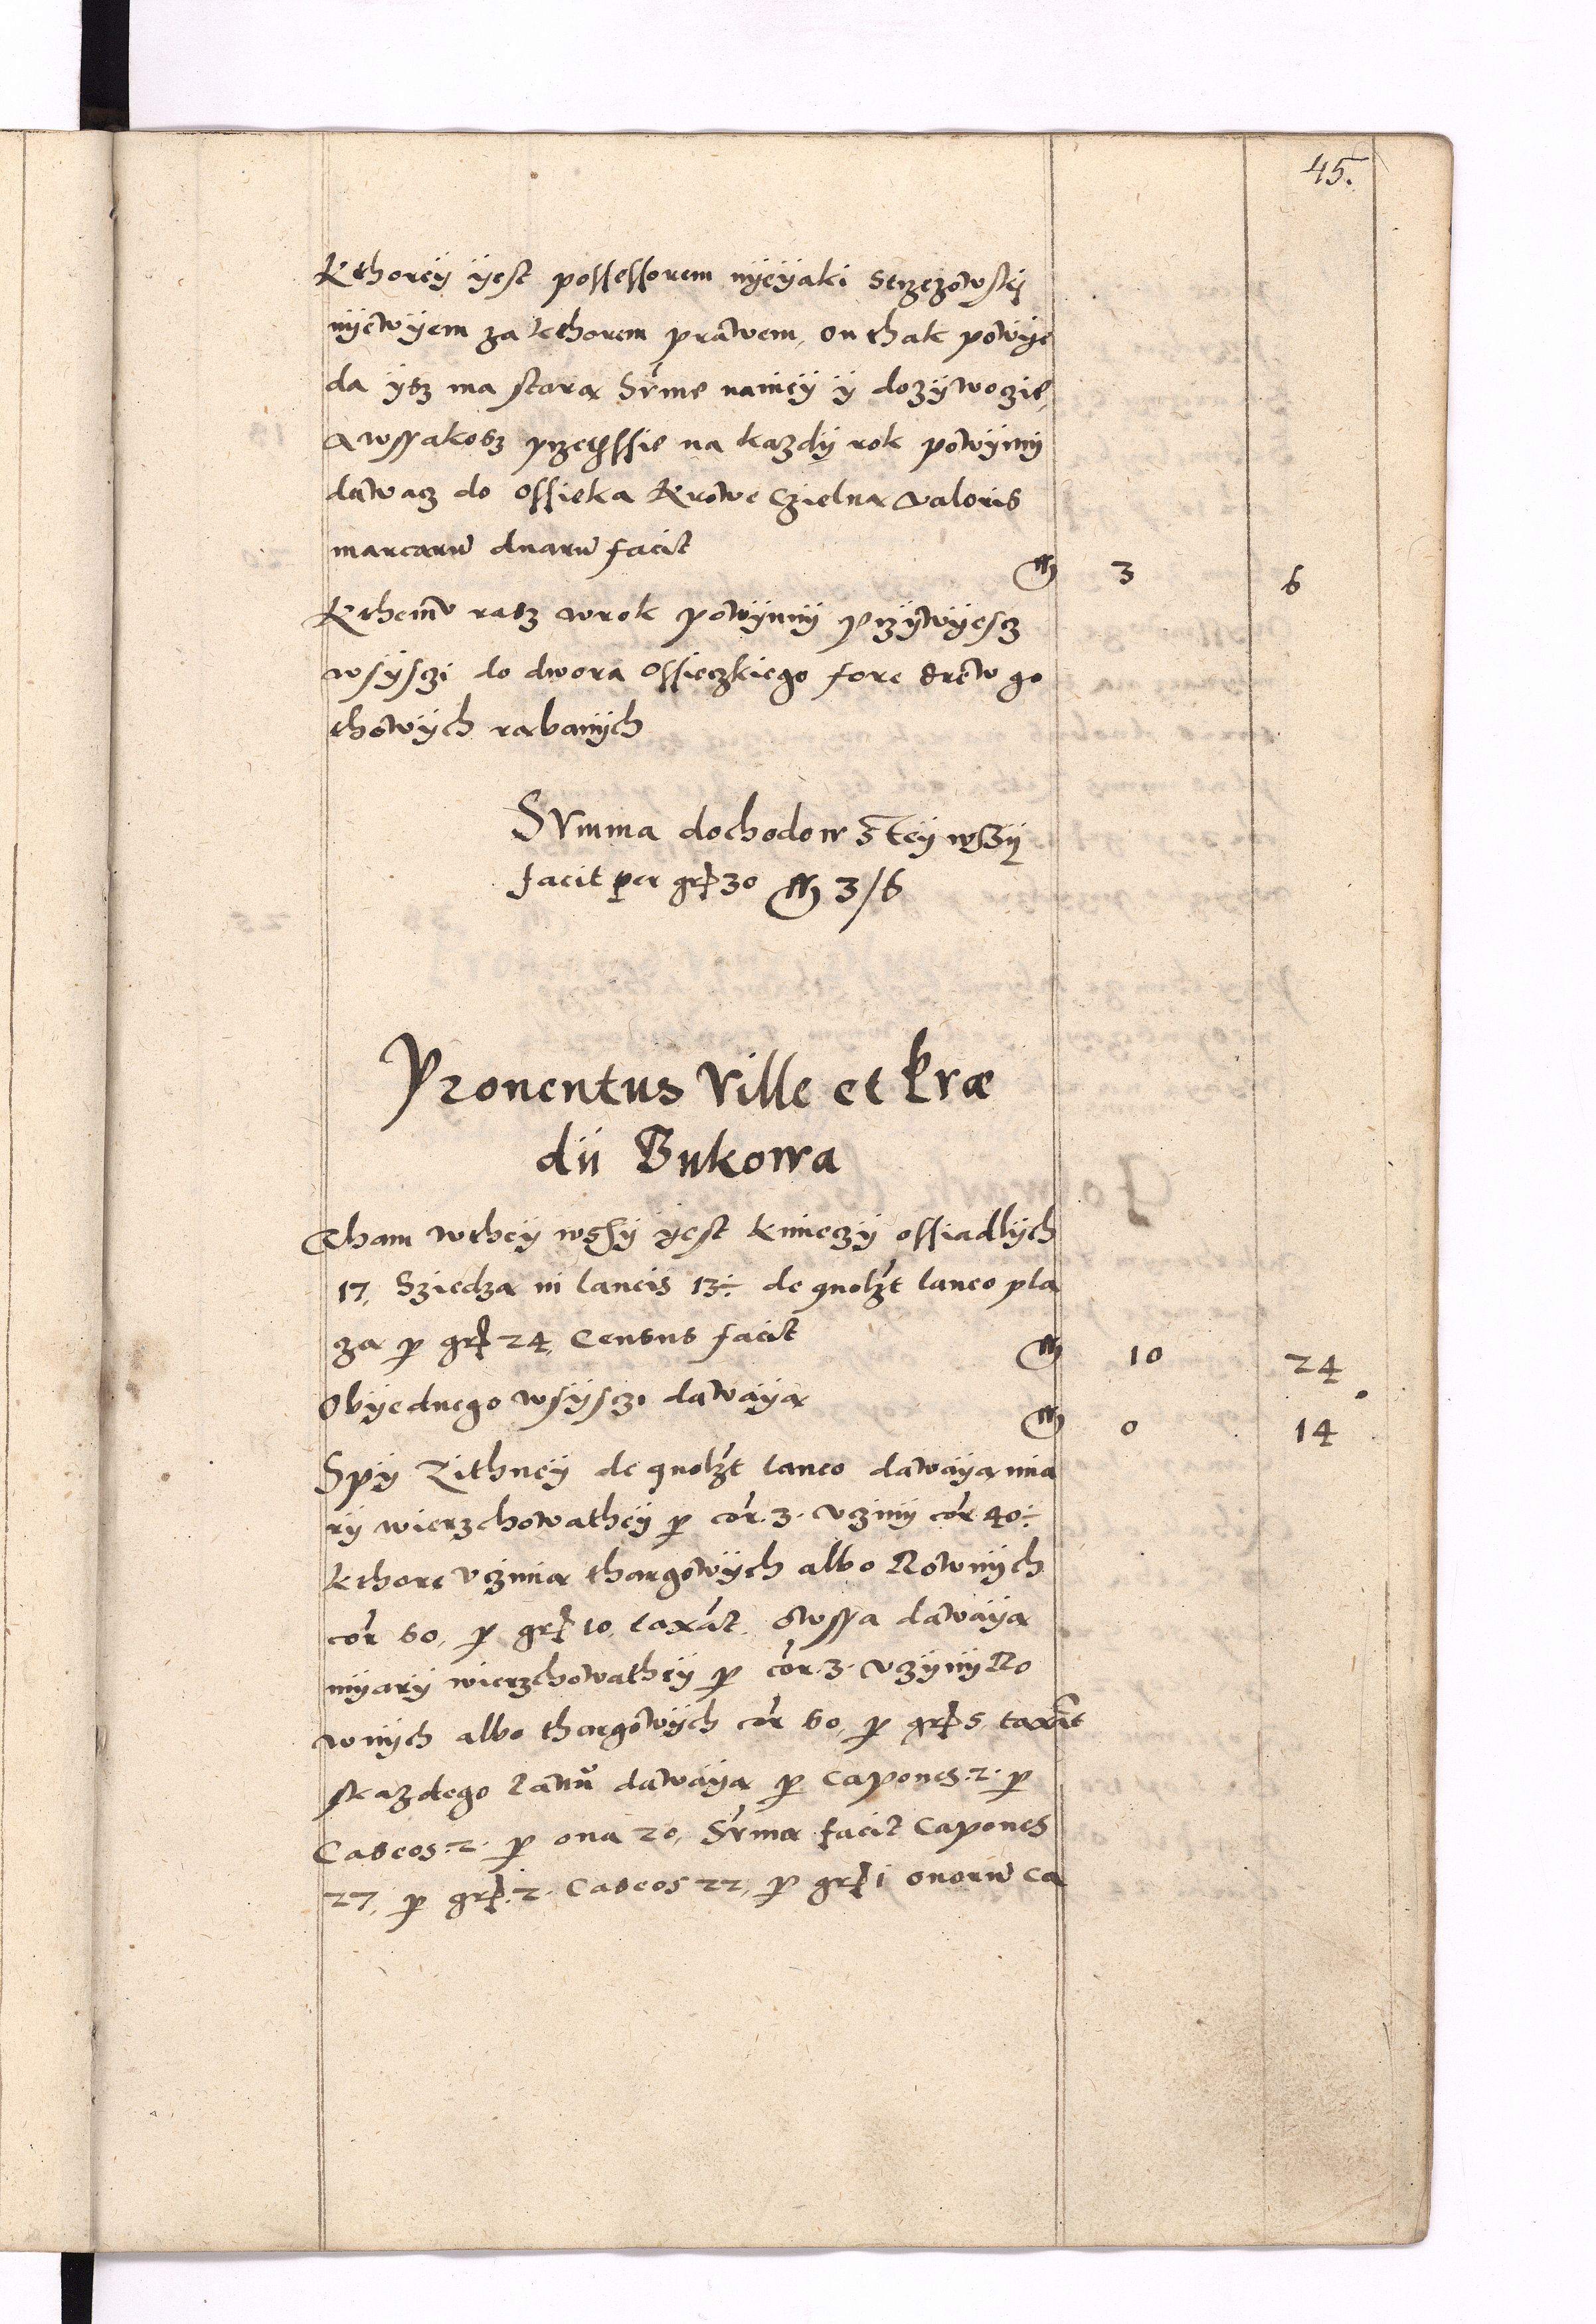 45.
Kthorëÿ ÿest possessorem nÿeÿaki Strzezowskÿ
nÿewÿem za kthorem prawem, on thak powÿe
da ÿsz ma stara Sv̄me naniëÿ ÿ dozÿwoczie,
A wssakosz przethssie na kazdÿ rok powÿnnÿ
dawacz do Ossieka Krowe Czielna valoris
marcarū duarū facit
m 3 6
Kthemv rasz wrok powÿnnÿ przÿwÿescz
wsÿsczi do dwora Ossieczkiego fore drew go
thowÿch rabanÿch
SVmma dochodow ztëÿ wszÿ
facit per gr 30 m 3/6
Prouentus Ville et Præ
dii Bukowa
Tham wthëÿ wsÿ ÿest kmieczÿ ossiadlÿch
17, Sziedza in laneis 13÷ de quolz̄t laneo pla
za p gr 24, Census facit
m 10 24
Obÿednego wsÿsczi dawaÿa
m 0 14
Spÿ Zithnëÿ de quolz̄t laneo dawaÿa mia
rÿ wierzchowathëÿ p cor. 3. vczinÿ cor 40÷
kthore vczinia thargowÿch albo Rownÿch
cor 60, p gr 10, taxāt. Owssa dawaÿa
mÿarÿ wierzchowathëÿ p cor. 3. vczÿnÿ Ro
wnÿch albo thargowÿch cor 60, p gr 5, taxāt
skazdego Lanŭ dawaÿa p Capones. 2. p
Caseos. 2. p oua 20, Sv̄ma facit Capones
27, p gr. 2. Caseos 27, p gr 1 ouorū Ca